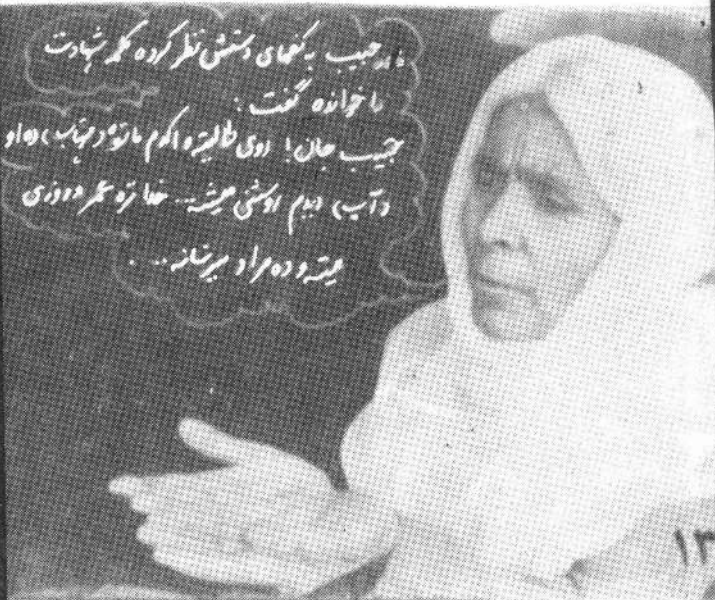 مادر حبیب به کفهای دستش نظر کرده کلمه شهادت
را خوانده گفت:
حبیب جان! روی طالیته و اگرم ماتو د مهتاب، ده او
د آب، دیدم روشنی میشه... خدا تره عمر و روزی
میته و ده مراد میرسانه...
۱۳